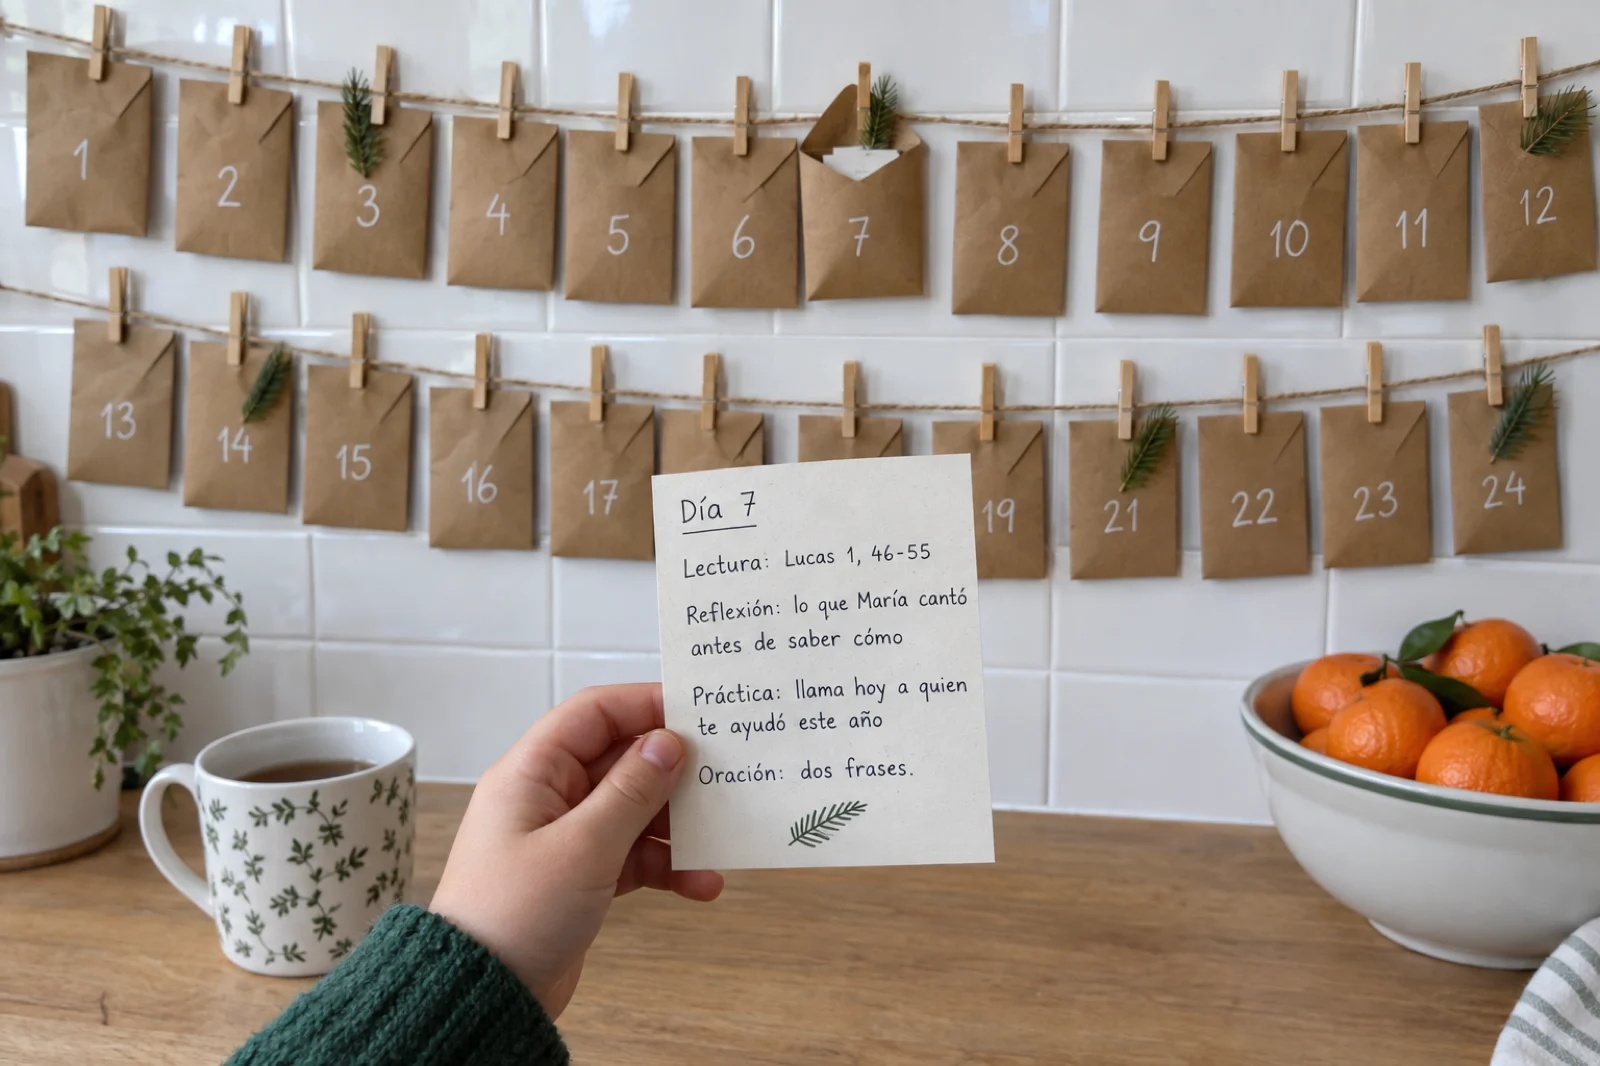 1
2
3
4
5
6
7
8
9
10
11
12
13
14
15
16
17
19
21
22
23
24
Día 7
Lectura: Lucas 1, 46-55
Reflexión: lo que María cantó
antes de saber cómo
Práctica: llama hoy a quien
te ayudó este año
Oración: dos frases.